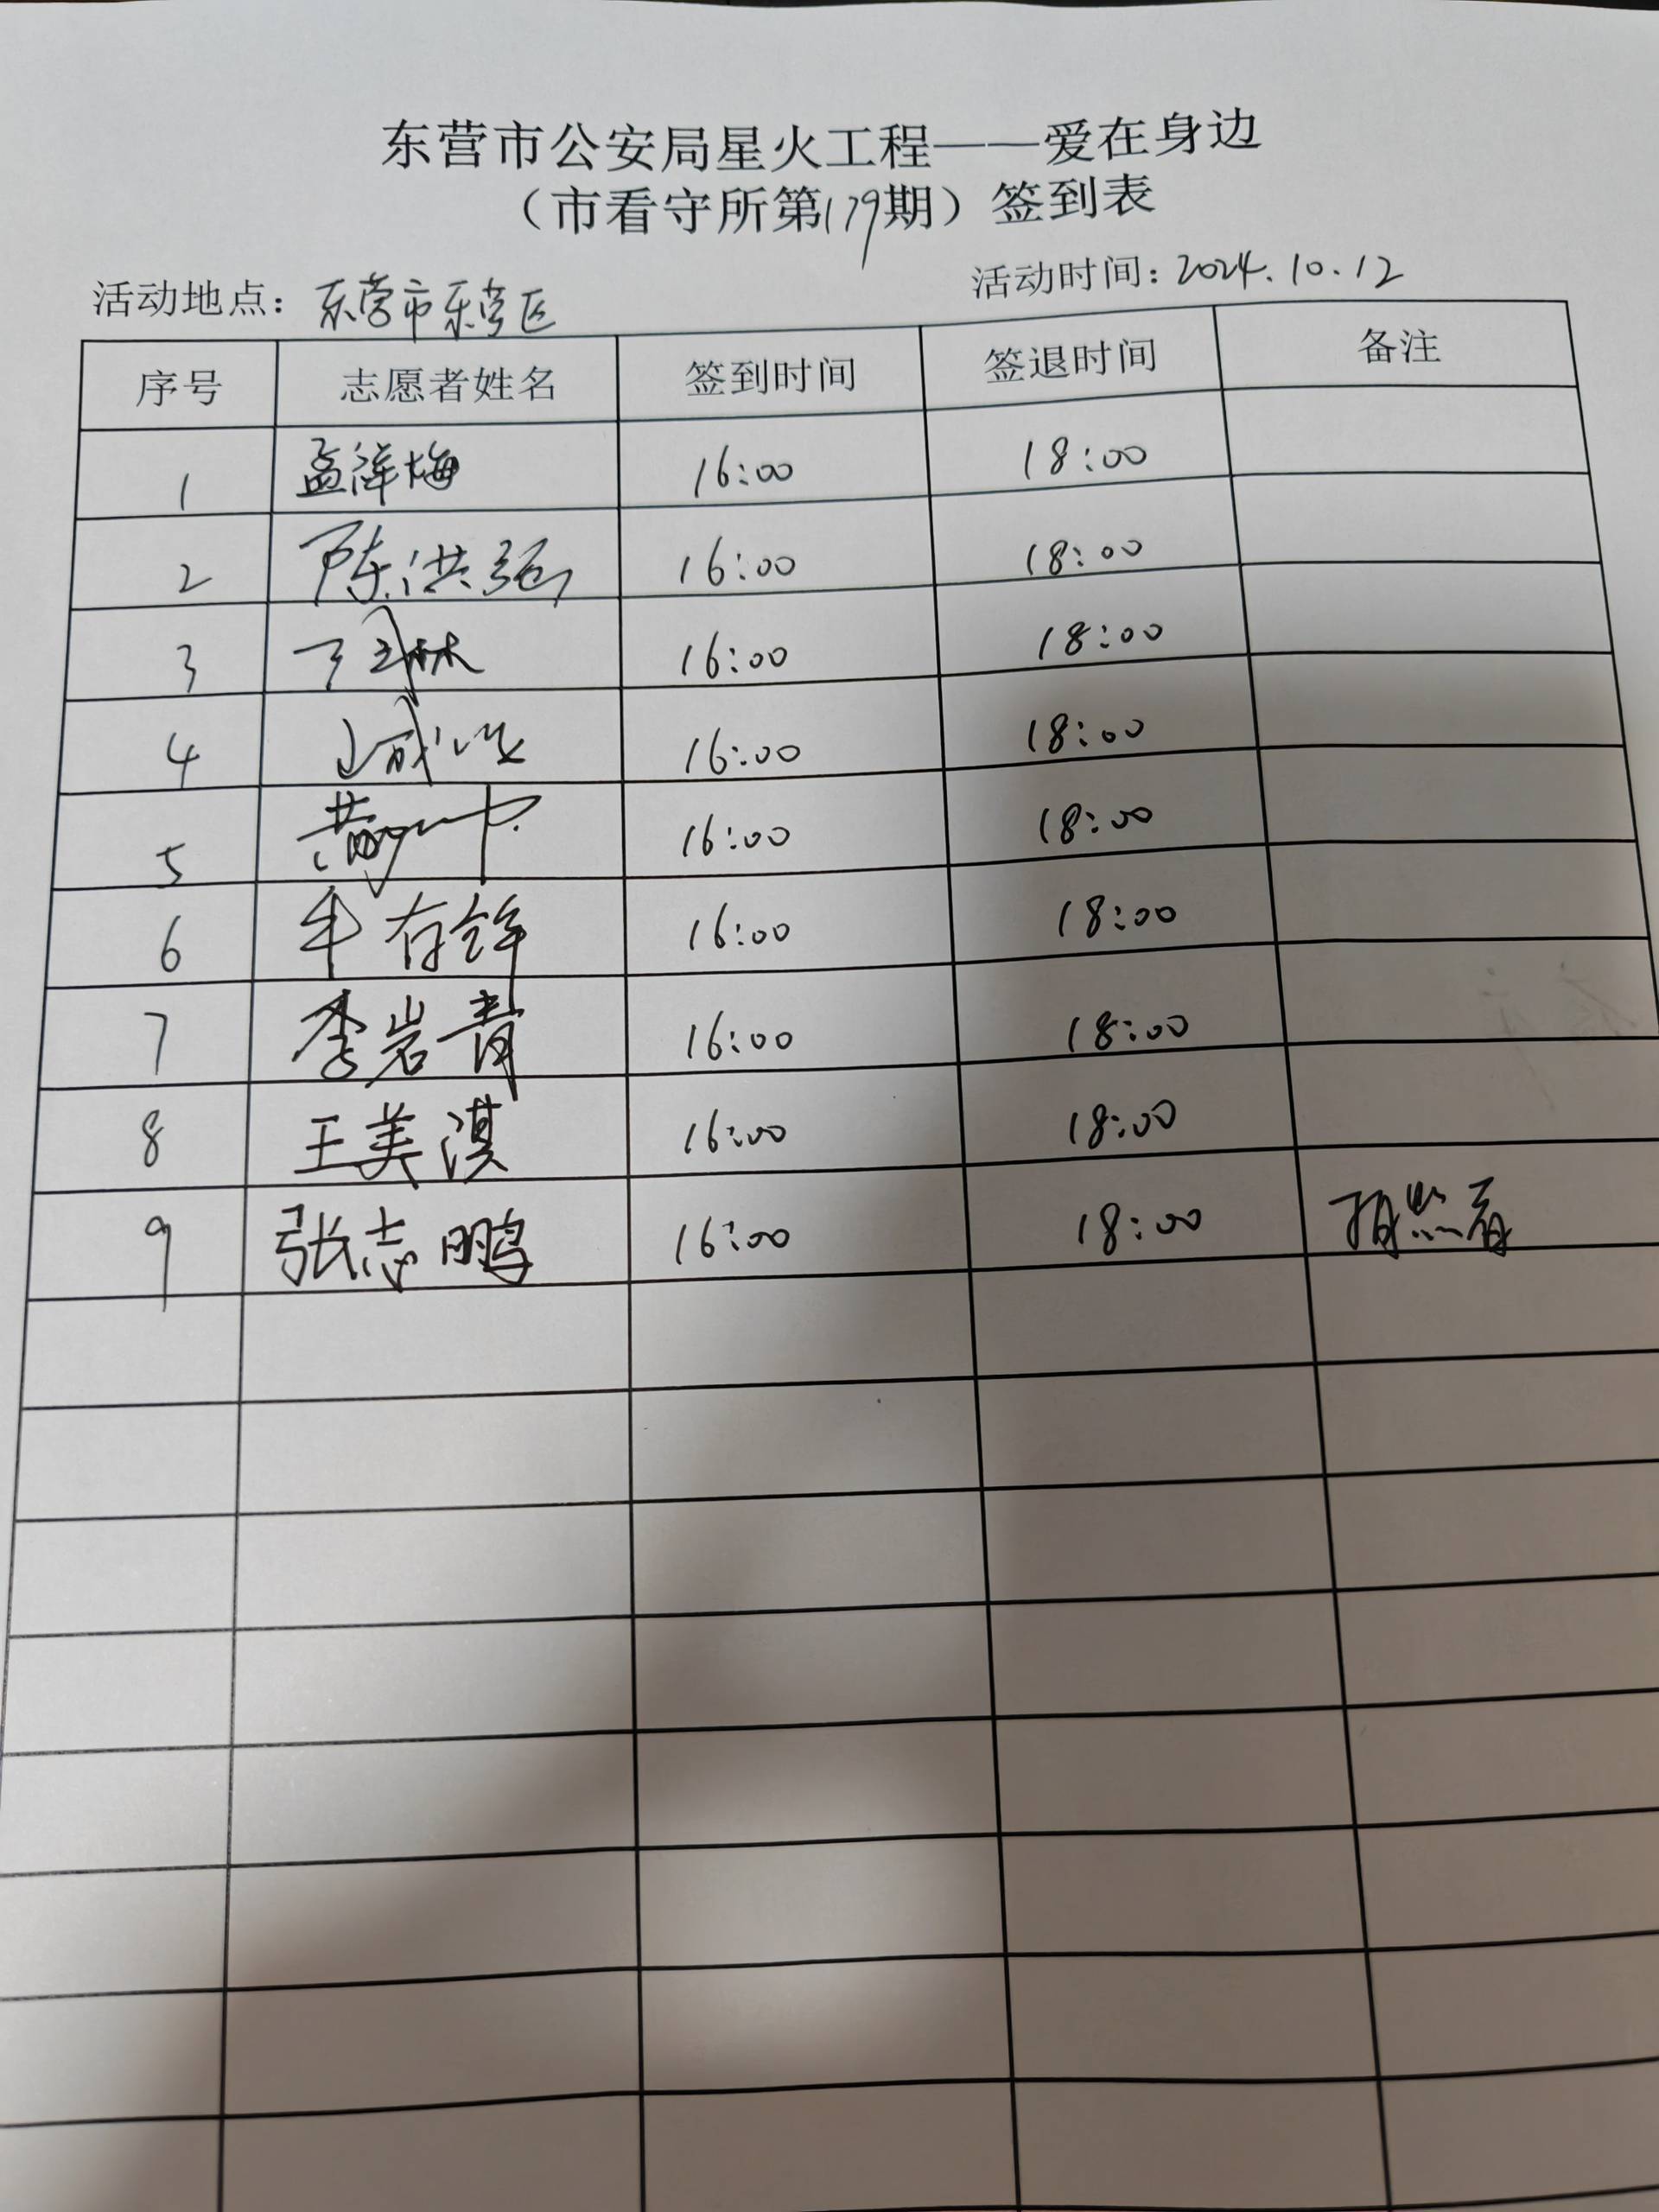 东营市公安局星火工程——爱在身边
（市看守所第179期）签到表
活动地点：东营市东营区 活动时间：2024.10.12
序号 志愿者姓名 签到时间 签退时间 备注
1 孟洋梅 16:00 18:00
2 陈洪强 16:00 18:00
3 16:00 18:00
4 16:00 18:00
5 16:00 18:00
6 牟存锋 16:00 18:00
7 李岩青 16:00 18:00
8 王美淇 16:00 18:00
9 张志鹏 16:00 18:00 拍照者